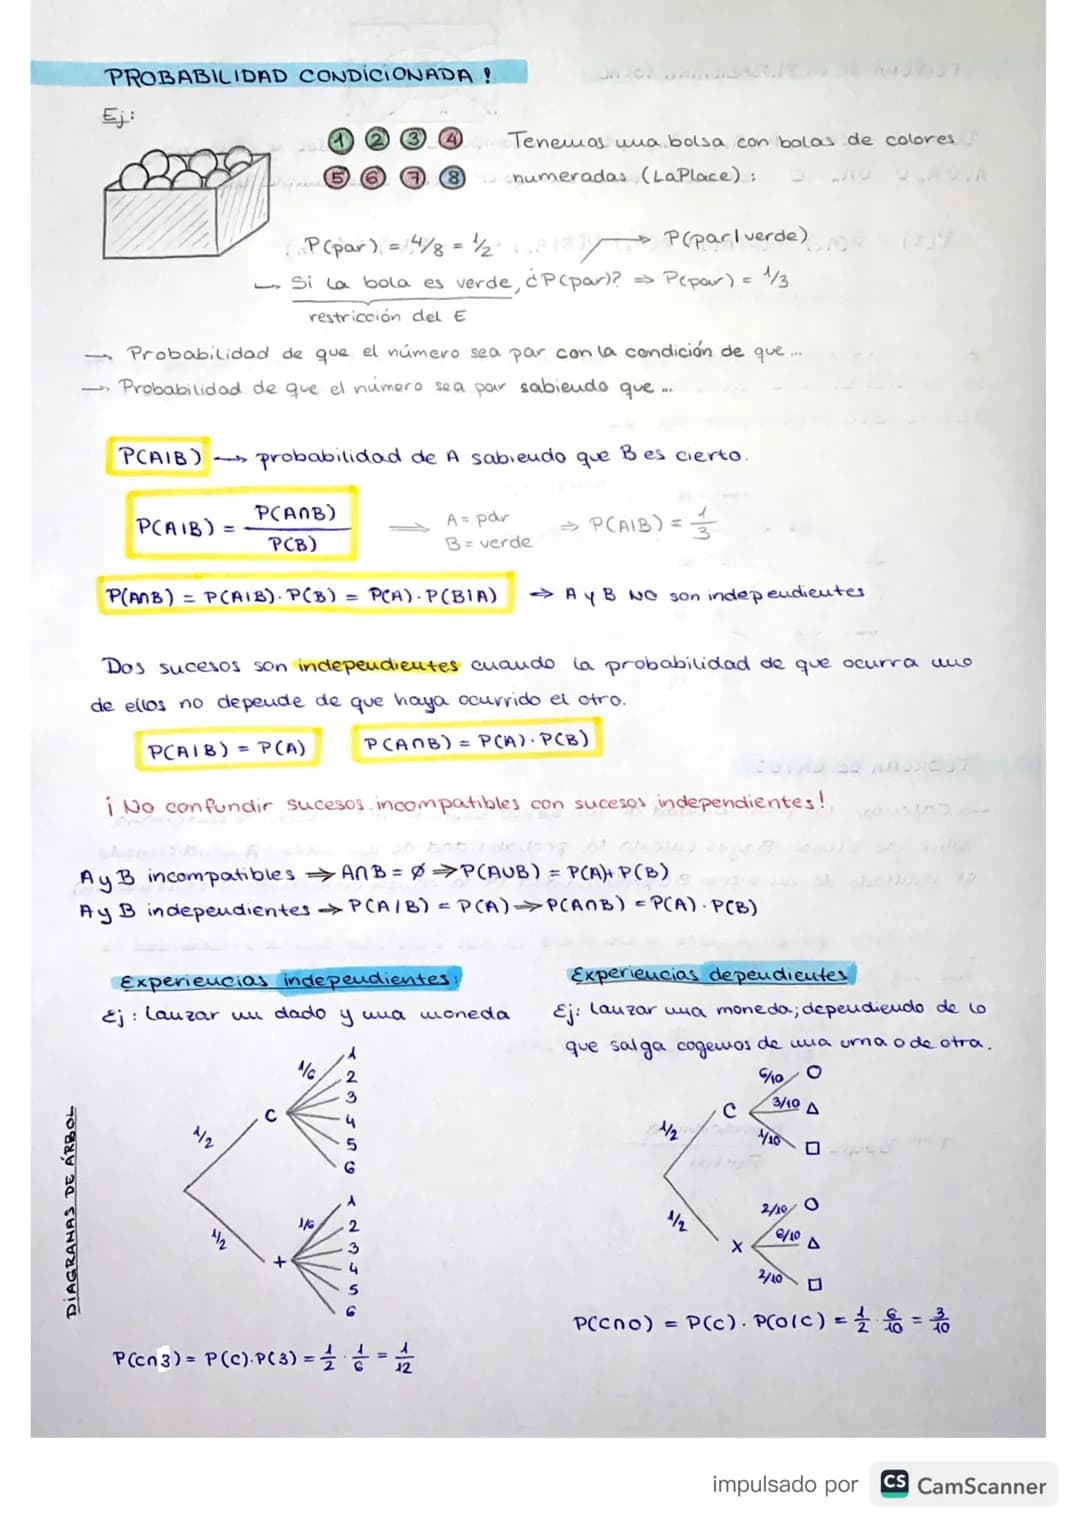 PROBABILIDAD CONDICIONADA !
Ej:
1 2 3 4
5 6 7 8
Tenemos una bolsa con bolas de colores
numeradas (LaPlace) :
P(par) = 4/8 = 1/2
→ P(par|verde)
→ Si la bola es verde, ¿P(par)? ⇒ P(par) = 1/3
restricción del E
→ Probabilidad de que el número sea par con la condición de que ...
→ Probabilidad de que el número sea par sabiendo que ...
P(A|B) → probabilidad de A sabiendo que B es cierto.
P(A|B) = P(A∩B) / P(B) ⇒ A = par B = verde ⇒ P(A|B) = 1/3
P(A∩B) = P(A|B) · P(B) = P(A) · P(B|A) ⇒ A y B NO son independientes
Dos sucesos son independientes cuando la probabilidad de que ocurra uno
de ellos no depende de que haya ocurrido el otro.
P(A|B) = P(A) P(A∩B) = P(A) · P(B)
¡ No confundir sucesos incompatibles con sucesos independientes!
A y B incompatibles → A∩B = Ø ⇒ P(A∪B) = P(A)+ P(B)
A y B independientes → P(A/B) = P(A) ⇒ P(A∩B) = P(A) · P(B)
Experiencias independientes:
Ej : lanzar un dado y una moneda
DIAGRANAS DE ÁRBOL
1/2 C 1/6 1
2
3
4
5
6
1/2 + 1/6 1
2
3
4
5
6
P(C∩3) = P(C)·P(3) = 1/2 · 1/6 = 1/12
Experiencias dependientes
Ej: lanzar una moneda; dependiendo de lo
que salga cogemos de una urna o de otra.
1/2 C 6/10 O
3/10 △
1/10 □
1/2 X 2/10 O
6/10 △
2/10 □
P(C∩O) = P(C) · P(O|C) = 1/2 · 6/10 = 3/10
impulsado por CS CamScanner